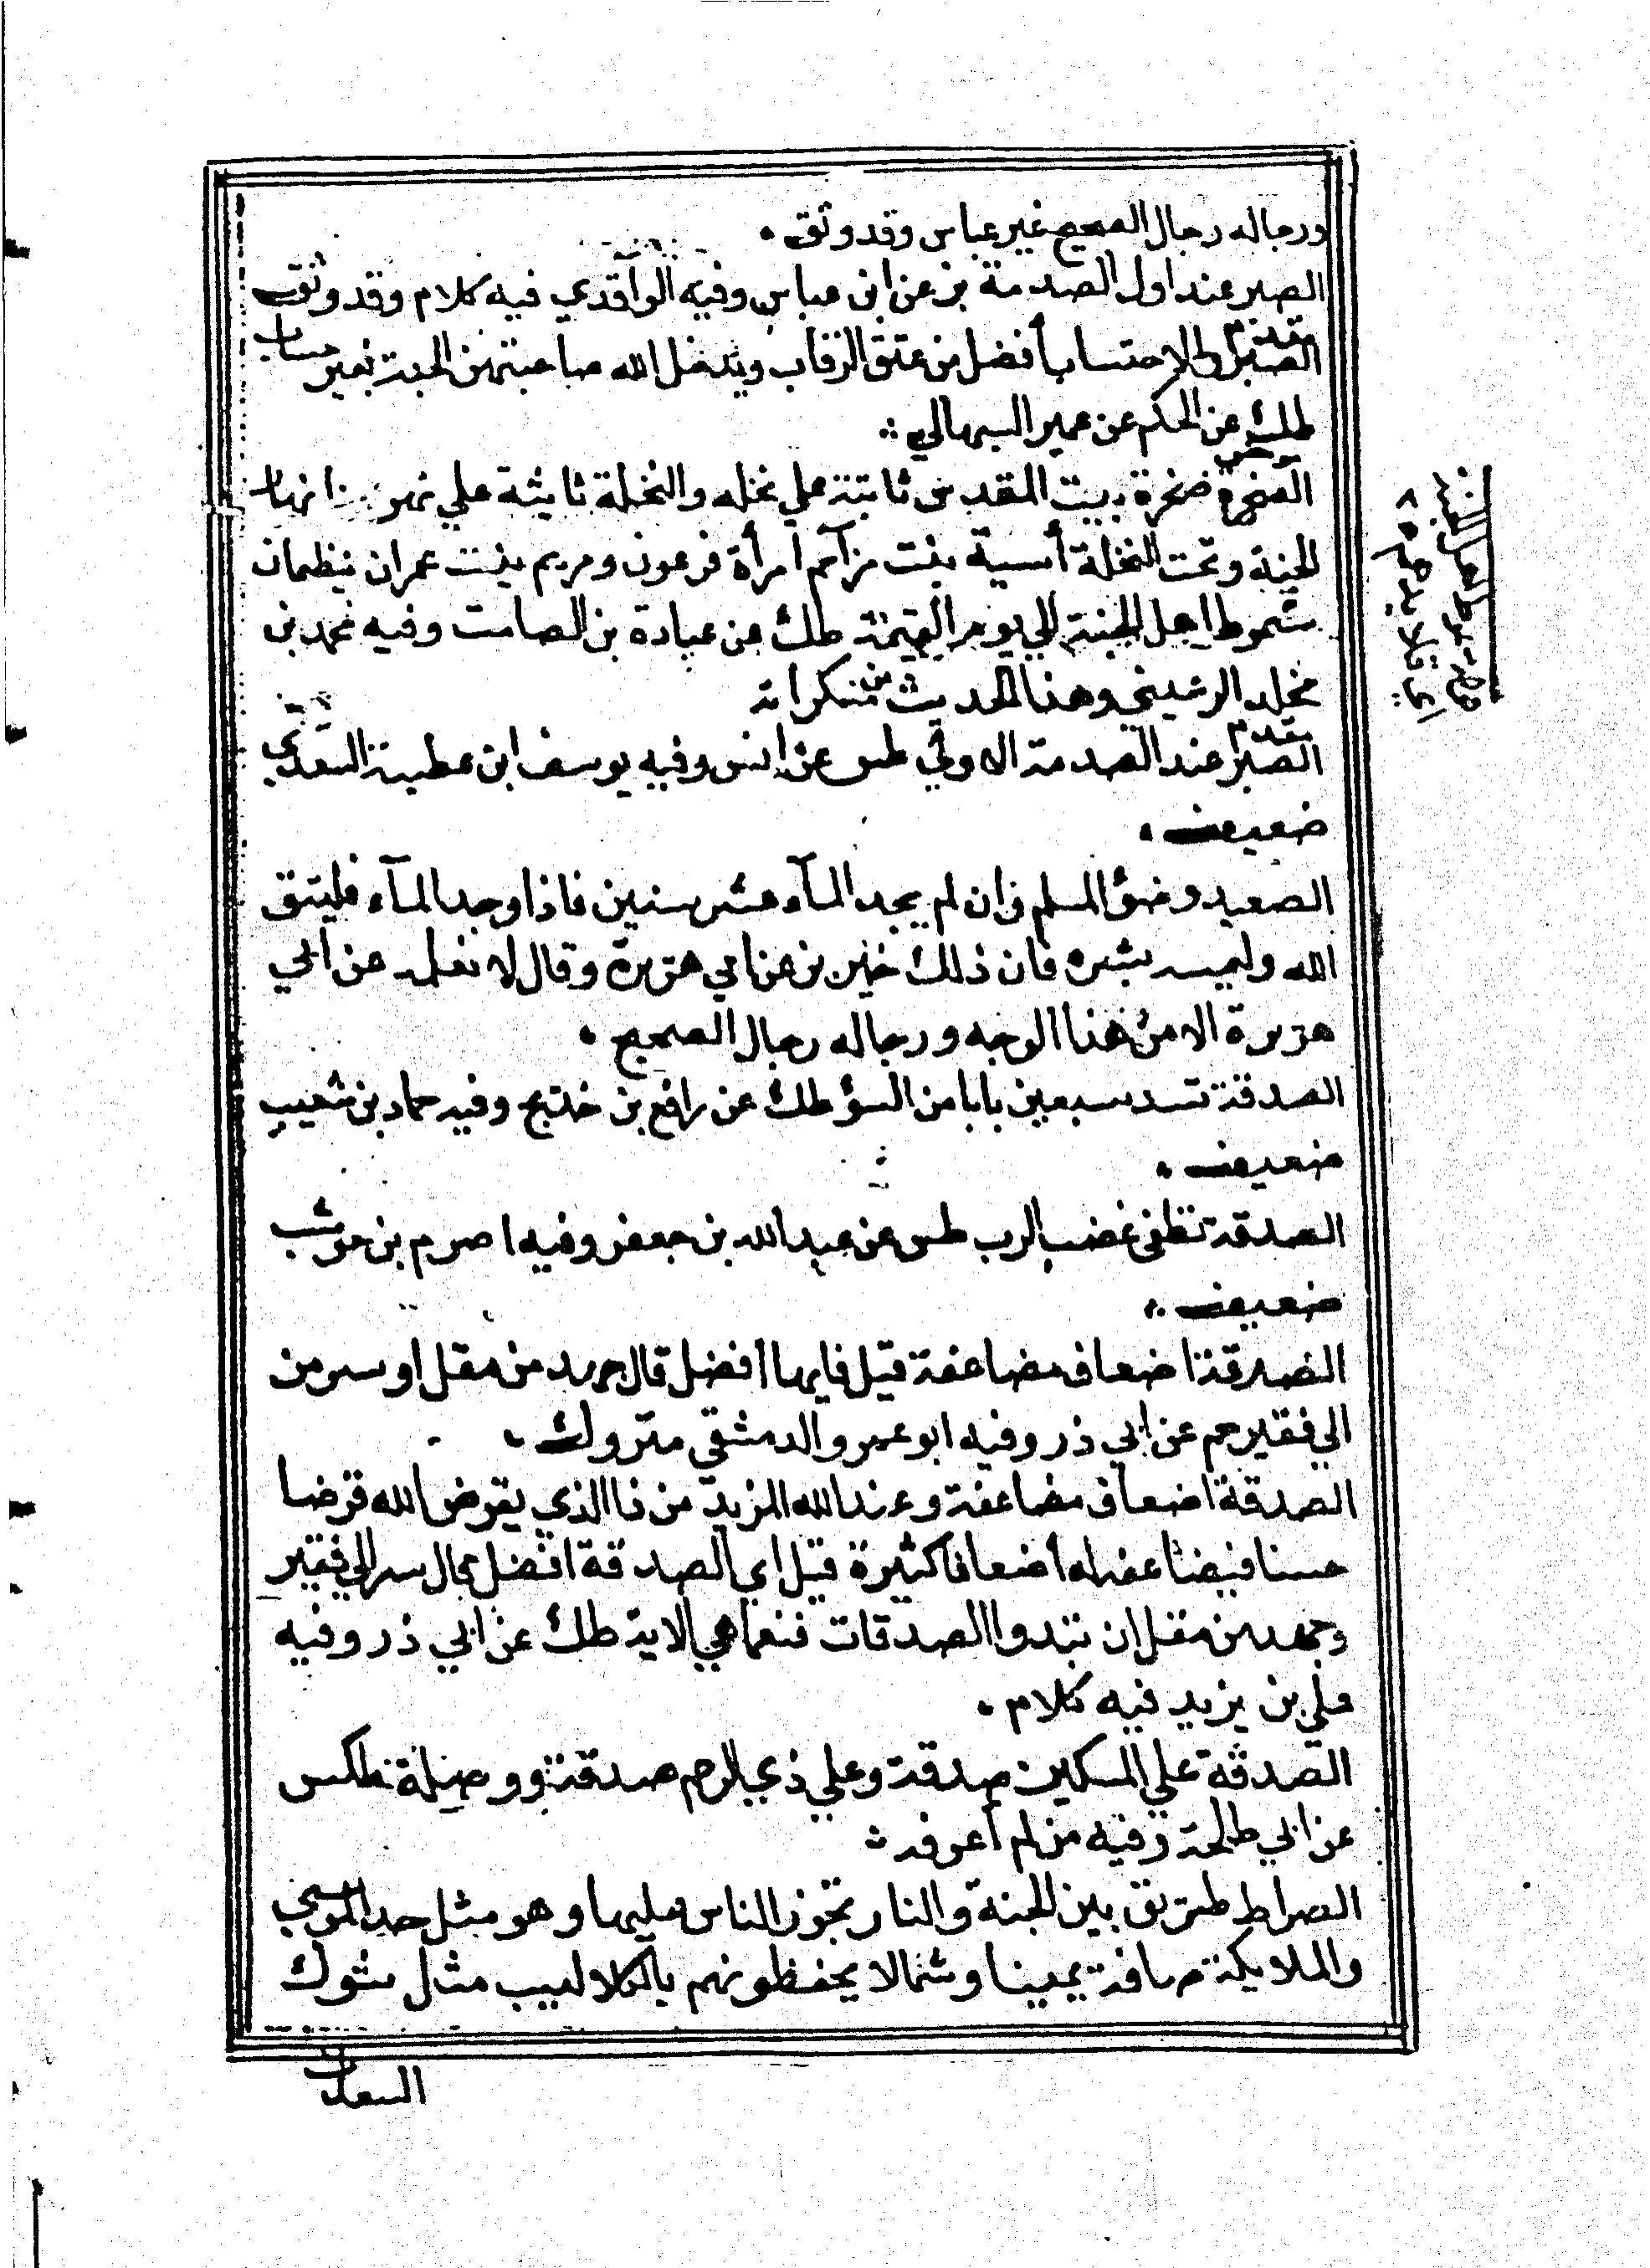 ورجاله رجال الصحيح غير عباس وقد وثق
الصبر عند اول الصدمة بز عن ابن عباس وفيه الواقدي فيه كلام وقد وثق
الصبر والاحتساب أفضل من عتق الرقاب ويدخل الله صاحبتهن الجنة بغير حساب
طك عن الحكم عن عمير الثمالي
الصخرة صخرة بيت المقدس ثابتة علي نخله والنخلة ثابتة علي نهر من انهار
الجنة وتحت النخلة أسية بنت مزآحم امرأة فرعون ومريم بنت عمران ينظمان
سموط اهل الجنة الي يوم القيمة طك عن عبادة بن الصامت وفيه محمد بن
مخلد الرعيني وهذا الحديث من منكراته
تقدم
الصبر عند الصدمة الاولي طس عن انس وفيه يوسف ابن عطية السعدي
ضعيف
الصعيد وضؤ المسلم وان لم يجد المآء عشر سنين فاذا وجد المآء فليتق
الله وليمسه بشره فان ذلك خير بز عن ابي هريرة وقال لا نعلمه عن ابي
هريرة الا من هذا الوجه ورجاله رجال الصحيح
الصدقة تسد سبعين بابا من السؤ طك عن رافع بن خديج وفيه حماد بن شعيب
ضعيف
الصدقة تطفئ غضب الرب طس عن عبد الله بن جعفر وفيه اصرم بن حوشب
ضعيف
الصدقة اضعاف مضاعفة قيل فايها أفضل قال جهد من مقل او سر من
الي فقير حم عن ابي ذر وفيه ابو عمرو الدمشقي متروك
الصدقة اضعاف مضاعفة وعند الله المزيد من ذا الذي يقرض الله قرضا
حسنا فيضاعفه له أضعافا كثيرة قيل اي الصدقة افضل قال سر الي فقير
وجهد من مقل ان تبدوا الصدقات فنعما هي الاية طك عن ابي ذر وفيه
علي بن يزيد فيه كلام
الصدقة علي المسكين صدقة وعلي ذي الرحم صدقة ووصلة طكس
عن ابي طلحة وفيه من لم أعرفه
الصراط طريق بين الجنة والنار تجوز الناس عليها وهو مثل حد الموسي
والملايكة صافة يمينا وشمالا يحفظونهم بالكلاليب مثل شوك
السعدان